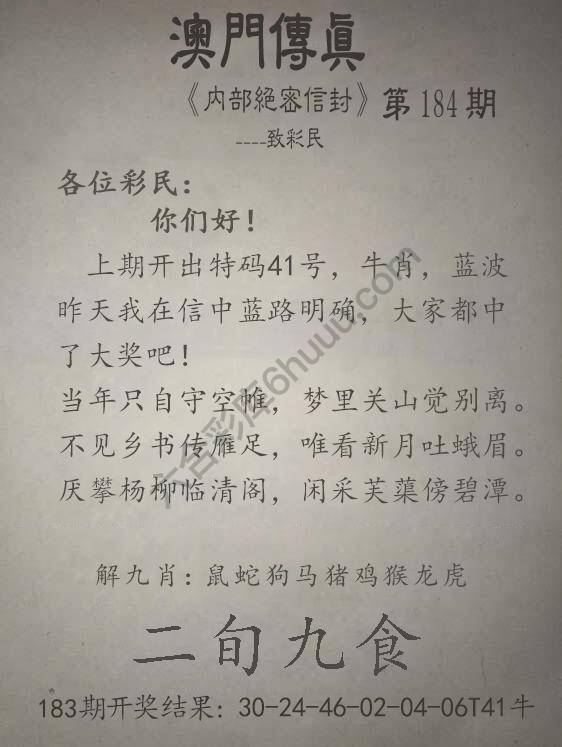 澳門傳眞
《内部絕密信封》第184期
----致彩民
各位彩民：
你们好！
上期开出特码41号，牛肖，蓝波
昨天我在信中蓝路明确，大家都中
了大奖吧！
当年只自守空帷，梦里关山觉别离。
不见乡书传雁足，唯看新月吐蛾眉。
厌攀杨柳临清阁，闲采芙蕖傍碧潭。
六合彩库6huuu.com
解九肖：鼠蛇狗马猪鸡猴龙虎
二旬九食
183期开奖结果：30-24-46-02-04-06T41牛